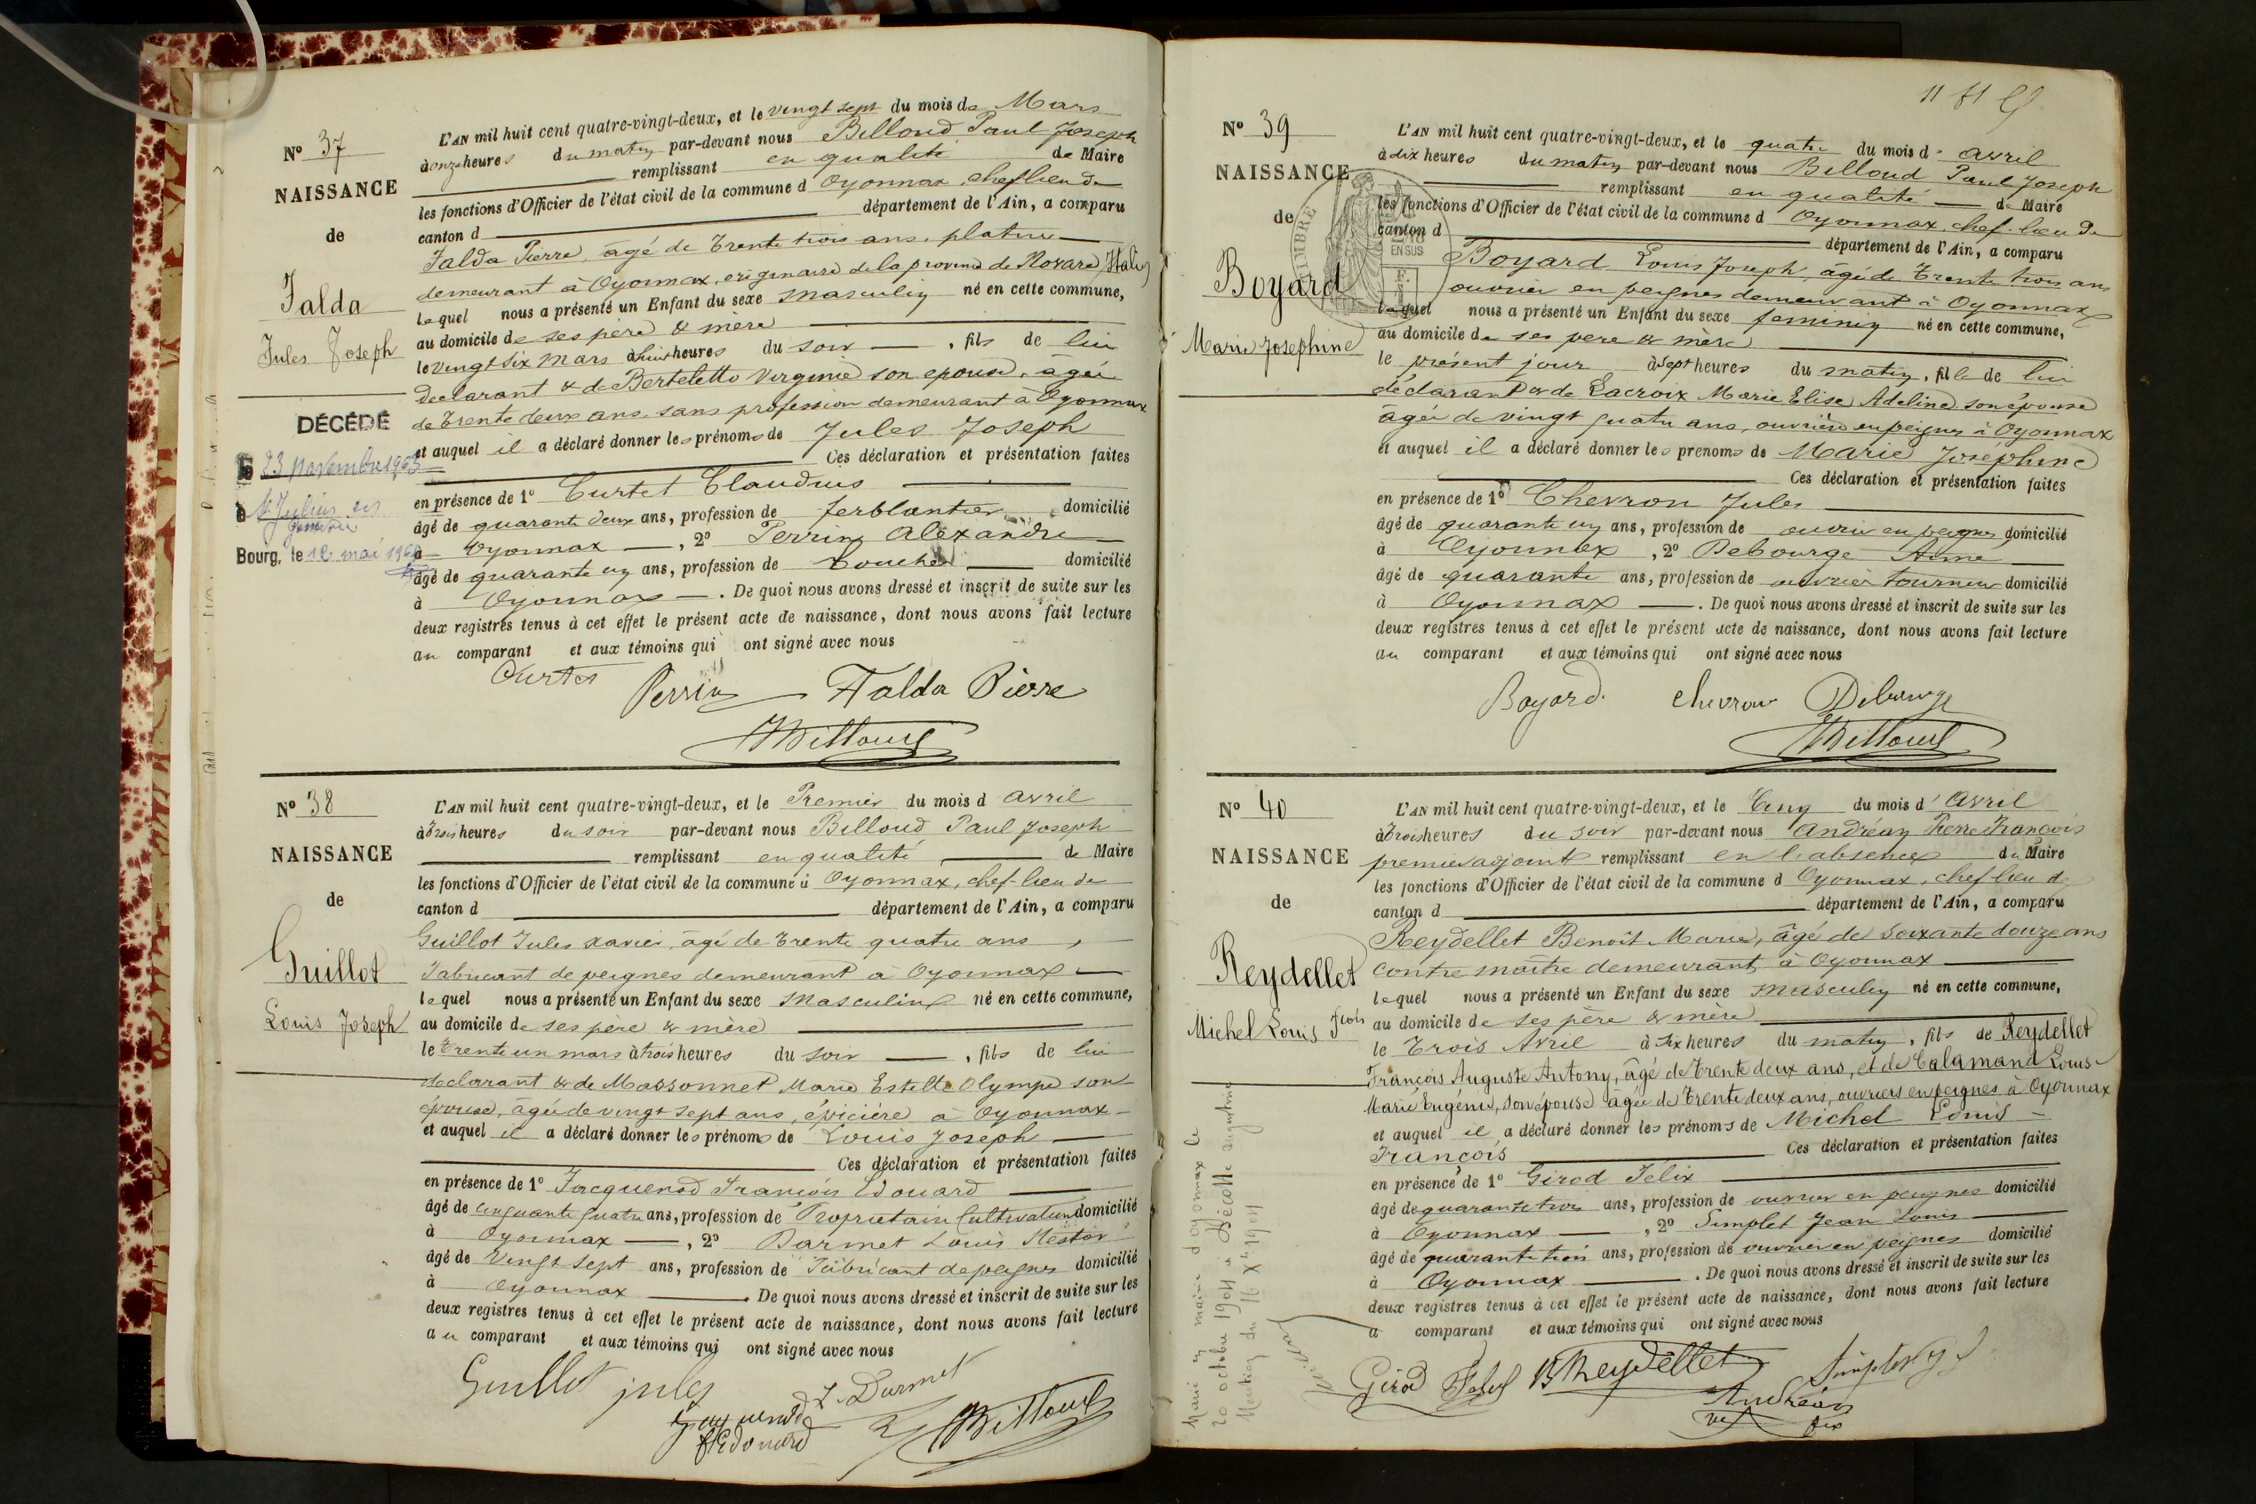 N° 37
NAISSANCE
de
Falda
Jules Joseph
DÉCÉDÉ
le 23 novembre 1963
à St Julien en
Genevois
Bourg, le 12 mai
L'AN mil huit cent quatre-vingt-deux, et le vingt sept du mois de Mars
à onze heures du matin par-devant nous Billoud Paul Joseph
remplissant en qualité de Maire
les fonctions d'Officier de l'état civil de la commune d Oyonnax, chef lieu de
canton d département de l'Ain, a comparu
Falda Pierre, âgé de trente trois ans, platrier
demeurant à Oyonnax, originaire de la province de Novare (Italie)
lequel nous a présenté un Enfant du sexe masculin né en cette commune,
au domicile de ses père & mère
le vingt six mars à huit heures du soir, fils de lui
déclarant & de Berteletto Virginie son épouse, âgée
de trente deux ans, sans profession demeurant à Oyonnax
et auquel il a déclaré donner les prénoms de Jules Joseph
Ces déclaration et présentation faites
en présence de 1° Curtet Claudius
âgé de quarante deux ans, profession de ferblantier domicilié
à Oyonnax, 2° Perrin Alexandre
âgé de quarante un ans, profession de boucher domicilié
à Oyonnax. De quoi nous avons dressé et inscrit de suite sur les
deux registres tenus à cet effet le présent acte de naissance, dont nous avons fait lecture
au comparant et aux témoins qui ont signé avec nous
Curtet Perrin Falda Pierre
Billoud
N° 38
NAISSANCE
de
Guillot
Louis Joseph
L'AN mil huit cent quatre-vingt-deux, et le Premier du mois d avril
à trois heures du soir par-devant nous Billoud Paul Joseph
remplissant en qualité de Maire
les fonctions d'Officier de l'état civil de la commune d Oyonnax, chef-lieu de
canton d département de l'Ain, a comparu
Guillot Jules Xavier, âgé de trente quatre ans,
fabricant de peignes demeurant à Oyonnax
lequel nous a présenté un Enfant du sexe Masculin né en cette commune,
au domicile de ses père & mère
le trente un mars à trois heures du soir, fils de lui
déclarant & de Massonnet Marie Estelle Olympe son
épouse, âgée de vingt sept ans, épicière à Oyonnax
et auquel il a déclaré donner les prénoms de Louis Joseph
Ces déclaration et présentation faites
en présence de 1° Jacquenod François Edouard
âgé de cinquante quatre ans, profession de Propriétaire Cultivateur domicilié
à Oyonnax, 2° Darmet Louis Nestor
âgé de Vingt sept ans, profession de fabricant de peignes domicilié
à Oyonnax. De quoi nous avons dressé et inscrit de suite sur les
deux registres tenus à cet effet le présent acte de naissance, dont nous avons fait lecture
au comparant et aux témoins qui ont signé avec nous
Guillot jules L. Darmet
Jacquenod
Edouard Billoud
N° 39
NAISSANCE
de
Boyard
Marie Josephine
TIMBRE
EN SUS
L'AN mil huit cent quatre-vingt-deux, et le quatre du mois d' avril
à dix heures du matin par-devant nous Billoud Paul Joseph
remplissant en qualité de Maire
les fonctions d'Officier de l'état civil de la commune d Oyonnax, chef-lieu de
canton d département de l'Ain, a comparu
Boyard Louis Joseph, âgé de trente trois ans
ouvrier en peignes demeurant à Oyonnax
lequel nous a présenté un Enfant du sexe feminin né en cette commune,
au domicile de ses père & mère
le présent jour à sept heures du matin, fille de lui
déclarant & de Lacroix Marie Elise Adeline son épouse
âgée de vingt quatre ans, ouvrière en peignes à Oyonnax
et auquel il a déclaré donner les prenoms de Marie Josephine
Ces déclaration et présentation faites
en présence de 1° Chevron Jules
âgé de quarante un ans, profession de ouvrier en peignes domicilié
à Oyonnax, 2° Debourge Aimé
âgé de quarante ans, profession de ouvrier tourneur domicilié
à Oyonnax. De quoi nous avons dressé et inscrit de suite sur les
deux registres tenus à cet effet le présent acte de naissance, dont nous avons fait lecture
au comparant et aux témoins qui ont signé avec nous
Boyard. Chevron Debourge
Billoud
N° 40
NAISSANCE
de
Reydellet
Michel Louis Fcois
Marié en mairie d'Oyonnax le
20 octobre 1904 à Décotte augustine
Mention du 16 Xbre 1904
L'AN mil huit cent quatre-vingt-deux, et le Cinq du mois d' Avril
à trois heures du soir par-devant nous Andréan Pierre François
premier adjoint remplissant en l'absence du Maire
les fonctions d'Officier de l'état civil de la commune d Oyonnax, chef lieu de
canton d département de l'Ain, a comparu
Reydellet Benoît Marie, âgé de soixante douze ans
contre maître demeurant à Oyonnax
lequel nous a présenté un Enfant du sexe masculin né en cette commune,
au domicile de ses père & mère
le trois Avril à six heures du matin, fils de Reydellet
François Auguste Antony, âgé de trente deux ans, et de Calamand Louise
Marie Eugénie, son épouse âgée de trente deux ans, ouvriers en peignes à Oyonnax
et auquel il a déclaré donner les prénoms de Michel Louis
François
Ces déclaration et présentation faites
en présence de 1° Girod Félix
âgé de quarante trois ans, profession de ouvrier en peignes domicilié
à Oyonnax, 2° Simplet Jean Louis
âgé de quarante trois ans, profession de ouvrier en peignes domicilié
à Oyonnax. De quoi nous avons dressé et inscrit de suite sur les
deux registres tenus à cet effet le présent acte de naissance, dont nous avons fait lecture
a comparant et aux témoins qui ont signé avec nous
Girod Felix B Reydellet
Andréan